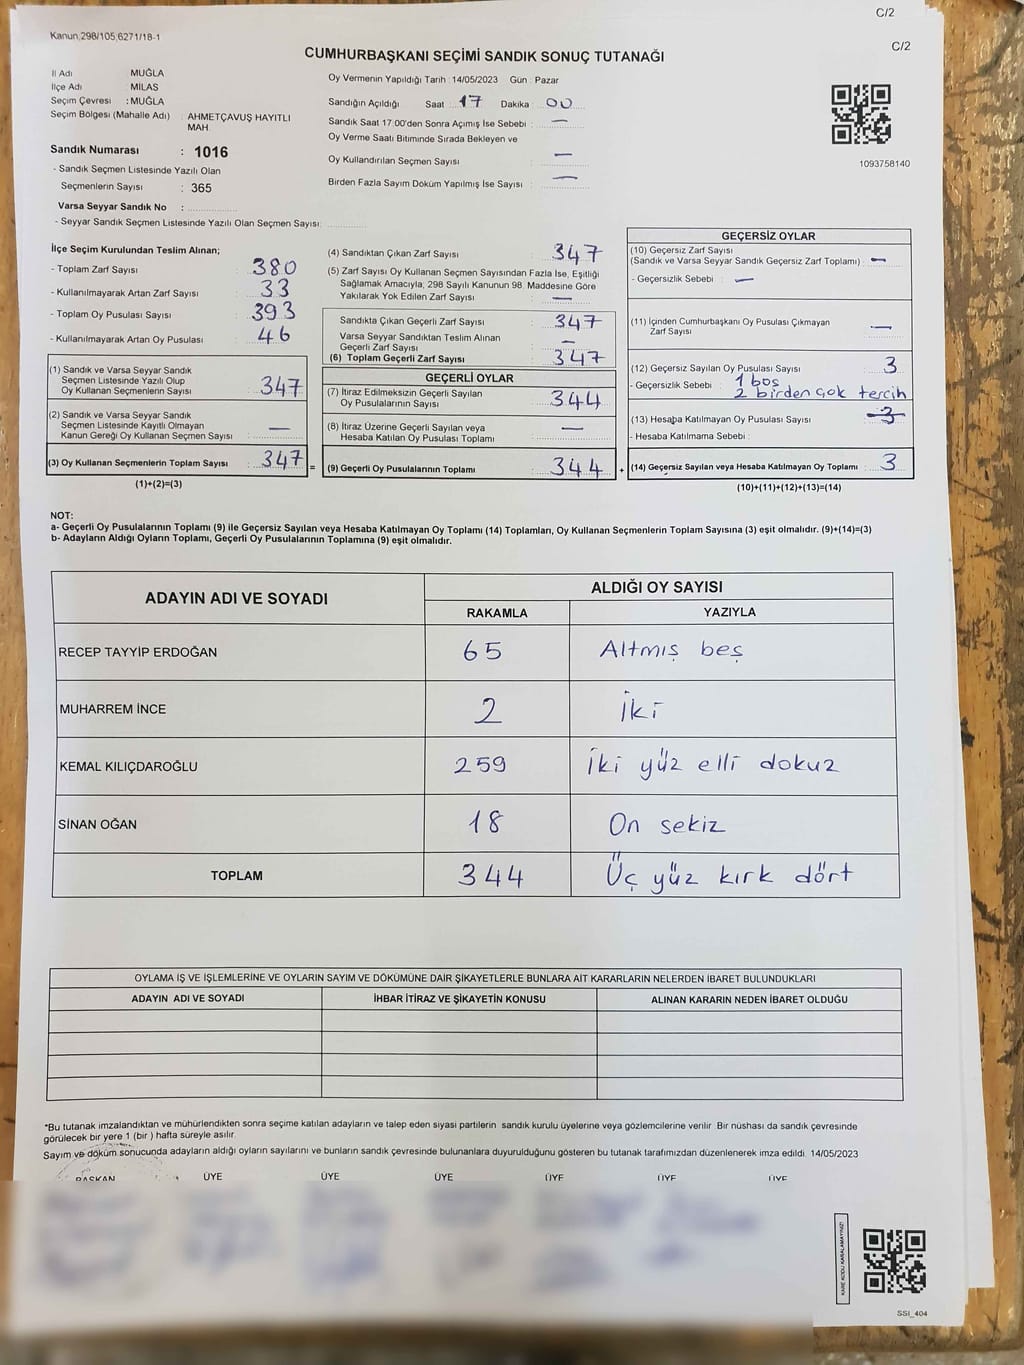 C/2
C/2
Kanun 298/105,6271/18-1
CUMHURBAŞKANI SEÇİMİ SANDIK SONUÇ TUTANAĞI
İl Adı MUĞLA
İlçe Adı MİLAS
Seçim Çevresi : MUĞLA
Seçim Bölgesi (Mahalle Adı) : AHMETÇAVUŞ HAYITLI MAH.
Sandık Numarası : 1016
- Sandık Seçmen Listesinde Yazılı Olan
Seçmenlerin Sayısı : 365
Varsa Seyyar Sandık No :
- Seyyar Sandık Seçmen Listesinde Yazılı Olan Seçmen Sayısı:
Oy Vermenin Yapıldığı Tarih : 14/05/2023 Gün : Pazar
Sandığın Açıldığı Saat : 17 Dakika : 00
Sandık Saat 17:00'den Sonra Açımış İse Sebebi : —
Oy Verme Saati Bitiminde Sırada Bekleyen ve
Oy Kullandırılan Seçmen Sayısı : —
Birden Fazla Sayım Döküm Yapılmış İse Sayısı : —
1093758140
İlçe Seçim Kurulundan Teslim Alınan;
- Toplam Zarf Sayısı : 380
- Kullanılmayarak Artan Zarf Sayısı : 33
- Toplam Oy Pusulası Sayısı : 393
- Kullanılmayarak Artan Oy Pusulası : 46
(1) Sandık ve Varsa Seyyar Sandık
Seçmen Listesinde Yazılı Olup
Oy Kullanan Seçmenlerin Sayısı : 347
(2) Sandık ve Varsa Seyyar Sandık
Seçmen Listesinde Kayıtlı Olmayan
Kanun Gereği Oy Kullanan Seçmen Sayısı : —
(3) Oy Kullanan Seçmenlerin Toplam Sayısı : 347 =
(1)+(2)=(3)
(4) Sandıktan Çıkan Zarf Sayısı : 347
(5) Zarf Sayısı Oy Kullanan Seçmen Sayısından Fazla İse, Eşitliği
Sağlamak Amacıyla, 298 Sayılı Kanunun 98. Maddesine Göre
Yakılarak Yok Edilen Zarf Sayısı : —
Sandıkta Çıkan Geçerli Zarf Sayısı : 347
Varsa Seyyar Sandıktan Teslim Alınan
Geçerli Zarf Sayısı : —
(6) Toplam Geçerli Zarf Sayısı : 347
GEÇERLİ OYLAR
(7) İtiraz Edilmeksizin Geçerli Sayılan
Oy Pusulalarının Sayısı : 344
(8) İtiraz Üzerine Geçerli Sayılan veya
Hesaba Katılan Oy Pusulası Toplamı : —
(9) Geçerli Oy Pusulalarının Toplamı : 344 +
GEÇERSİZ OYLAR
(10) Geçersiz Zarf Sayısı
(Sandık ve Varsa Seyyar Sandık Geçersiz Zarf Toplamı) : —
- Geçersizlik Sebebi : —
(11) İçinden Cumhurbaşkanı Oy Pusulası Çıkmayan
Zarf Sayısı : —
(12) Geçersiz Sayılan Oy Pusulası Sayısı : 3
- Geçersizlik Sebebi : 1 boş
2 birden çok tercih
(13) Hesaba Katılmayan Oy Pusulası Sayısı : 3
- Hesaba Katılmama Sebebi :
(14) Geçersiz Sayılan veya Hesaba Katılmayan Oy Toplamı : 3
(10)+(11)+(12)+(13)=(14)
NOT:
a- Geçerli Oy Pusulalarının Toplamı (9) ile Geçersiz Sayılan veya Hesaba Katılmayan Oy Toplamı (14) Toplamları, Oy Kullanan Seçmenlerin Toplam Sayısına (3) eşit olmalıdır. (9)+(14)=(3)
b- Adayların Aldığı Oyların Toplamı, Geçerli Oy Pusulalarının Toplamına (9) eşit olmalıdır.
ADAYIN ADI VE SOYADI ALDIĞI OY SAYISI
RAKAMLA YAZIYLA
RECEP TAYYİP ERDOĞAN 65 Altmış beş
MUHARREM İNCE 2 İki
KEMAL KILIÇDAROĞLU 259 İki yüz elli dokuz
SİNAN OĞAN 18 On sekiz
TOPLAM 344 Üç yüz kırk dört
OYLAMA İŞ VE İŞLEMLERİNE VE OYLARIN SAYIM VE DÖKÜMÜNE DAİR ŞİKAYETLERLE BUNLARA AİT KARARLARIN NELERDEN İBARET BULUNDUKLARI
ADAYIN ADI VE SOYADI İHBAR İTİRAZ VE ŞİKAYETİN KONUSU ALINAN KARARIN NEDEN İBARET OLDUĞU
*Bu tutanak imzalandıktan ve mühürlendikten sonra seçime katılan adayların ve talep eden siyasi partilerin sandık kurulu üyelerine veya gözlemcilerine verilir. Bir nüshası da sandık çevresinde
görülecek bir yere 1 (bir) hafta süreyle asılır.
Sayım ve döküm sonucunda adayların aldığı oyların sayılarını ve bunların sandık çevresinde bulunanlara duyurulduğunu gösteren bu tutanak tarafımızdan düzenlenerek imza edildi. 14/05/2023
BAŞKAN ÜYE ÜYE ÜYE ÜYE ÜYE ÜYE
KARE KODU KARALAMAYINIZ!
SSI_404